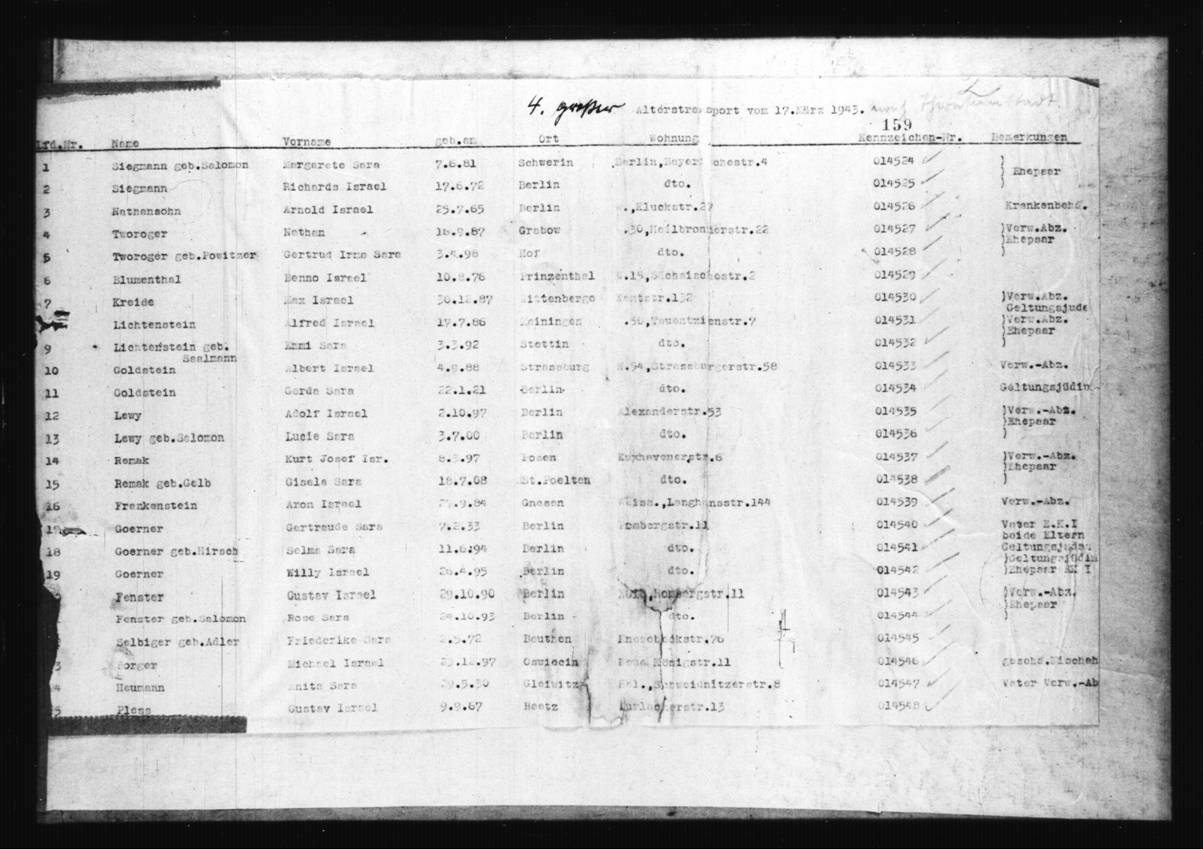 4. großer Alterstransport vom 17.März 1943. nach Theresienstadt
159
Lfd.Nr. Name Vorname geb.am Ort Wohnung Kennzeichen-Nr. Bemerkungen
1 Siegmann geb.Salomon Margarete Sara 7.6.81 Schwerin Berlin, 014524 )
2 Siegmann Richards Israel 17.6.72 Berlin dto. 014525 ) Ehepaar
3 Nathansohn Arnold Israel 25.7.65 Berlin Kluckstr.27 014526 Krankenbehd.
4 Tworoger Nathan 16.9.87 Grabow .30,Heilbronnerstr.22 014527 )Verw.Abz.
)Ehepaar
5 Tworoger geb.Powitzer Gertrud Irma Sara 3.4.98 Hof dto. 014528 )
6 Blumenthal Benno Israel 10.8.76 Prinzenthal .15,Sächsischestr.2 014529
7 Kreide Max Israel 30.12.87 Wittenberge Kantstr.132 014530 )Verw.Abz.
Geltungsjude
Lichtenstein Alfred Israel 19.7.86 Meiningen .50,Tauentzienstr.7 014531 )Verw.Abz.
)Ehepaar
9 Lichtenstein geb. Emmi Sara 3.3.92 Stettin dto. 014532 )
Saalmann
10 Goldstein Albert Israel 4.9.88 Strassburg N.54,Strassburgerstr.58 014533 Verw.-Abz.
11 Goldstein Gerda Sara 22.1.21 Berlin dto. 014534 Geltungsjüdin
12 Lewy Adolf Israel 2.10.97 Berlin Alexanderstr.53 014535 )Verw.-Abz.
)Ehepaar
13 Lewy geb.Salomon Lucie Sara 3.7.00 Berlin dto. 014536 )
14 Remak Kurt Josef Isr. 8.3.97 Posen Kuxhavenerstr.6 014537 )Verw.-Abz.
)Ehepaar
15 Remak geb.Gelb Gisela Sara 18.7.08 St.Poelten dto. 014538 )
16 Frankenstein Aron Israel .9.84 Gnesen Weiss.,Langhansstr.144 014539 Verw.-Abz.
Goerner Gertraude Sara 7.2.33 Berlin Hombergstr.11 014540 Vater E.K.I
beide Eltern
18 Goerner geb.Hirsch Selma Sara 11.6.94 Berlin dto. 014541 Geltungsjuden
)Geltungsjüdin
19 Goerner Willy Israel 26.4.95 Berlin dto. 014542 )Ehepaar EK I
Fenster Gustav Israel 29.10.90 Berlin 014543 )Verw.-Abz.
)Ehepaar
Fenster geb.Salomon Rosa Sara 24.10.93 Berlin dto. 014544 )
Selbiger geb.Adler Friederike Sara 2.5.72 Beuthen Knesebeckstr.76 014545
3 Sorger Michael Israel 23.12.97 Oswiecin Neue Königstr.11 014546 geschd.Mischeh
4 Heumann Anita Sara 29.5.30 Gleiwitz Hal.,Schweidnitzerstr.8 014547 Vater Verw.-Ab
5 Pless Gustav Israel 9.9.67 Reetz Durlacherstr.13 014548